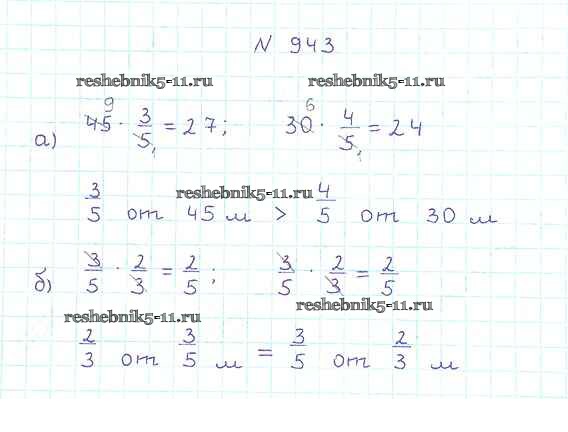 N 943
reshebnik5-11.ru reshebnik5-11.ru
а) 45 9 · 3/5 1 = 27; 30 6 · 4/5 1 = 24
reshebnik5-11.ru
3/5 от 45 м > 4/5 от 30 м
б) 3/5 · 2/3 = 2/5; 3/5 · 2/3 = 2/5
reshebnik5-11.ru
reshebnik5-11.ru
2/3 от 3/5 м = 3/5 от 2/3 м